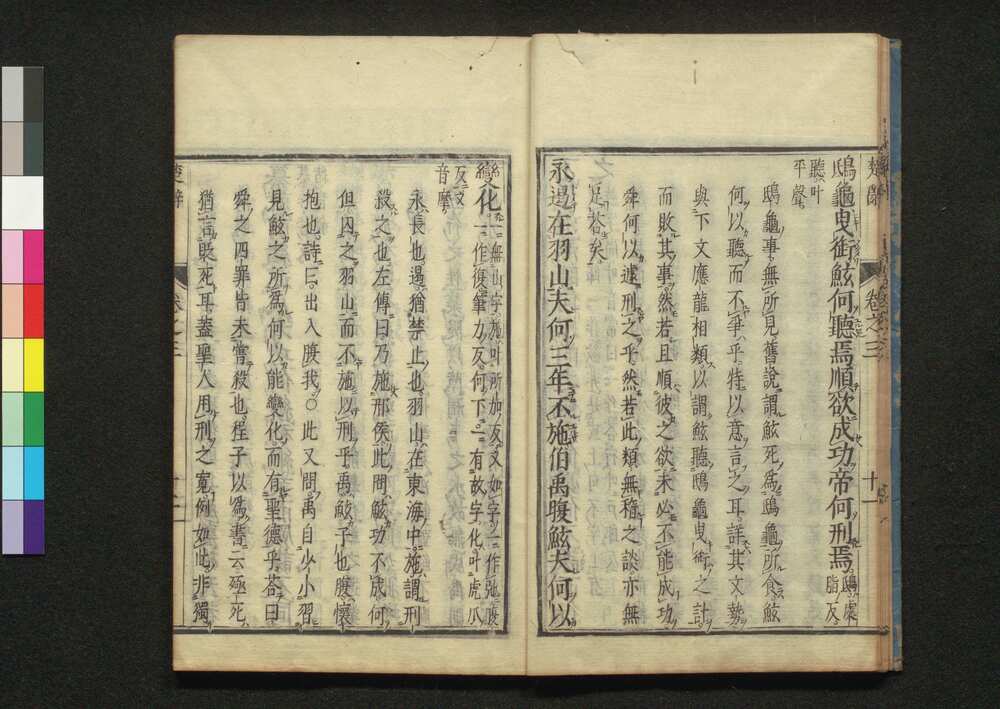 楚辭 卷之三 十一
鴟龜曳銜鮌何聽焉順欲成功帝何刑焉鴟處
脂反
聽叶
平聲
鴟龜事無所見舊說謂鮌死為鴟龜所食鮌
何以聽而不爭乎特以意言之耳詳其文勢
與下文應龍相類以謂鮌聽鴟龜曳銜之計
而敗其事然若且順彼之欲未必不能成功
舜何以遽刑之乎然若此類無稽之談亦無
足荅矣
永遏在羽山夫何三年不施伯禹腹鮌夫何以
變化一無山字施叶所加反又如字一作弛腹
一作復筆力反何下一有故字化叶虎瓜
反又
音麾
永長也遏猶禁止也羽山在東海中施謂刑
殺之也左傳曰乃施邢侯此問鮌功不成何
但囚之羽山而不施以刑乎禹鮌子也腹懷
抱也詩曰出入腹我○此又問禹自少小習
見鮌之所為何以能變化而有聖德乎荅曰
舜之四罪皆未嘗殺也程子以為書云殛死
猶言貶死耳蓋聖人用刑之寬例如此非獨
楚辭 卷之三